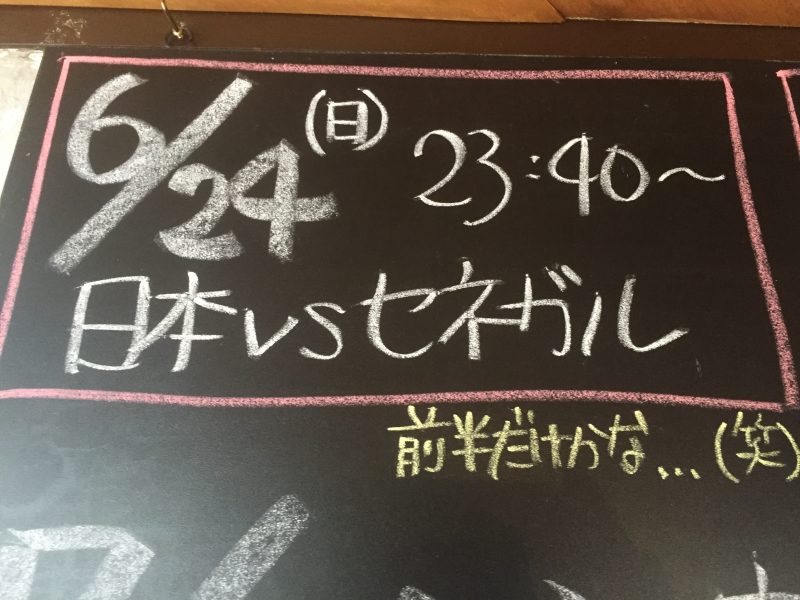 6/24(日) 23:40~
日本vsセネガル
前半だけかな...(笑)